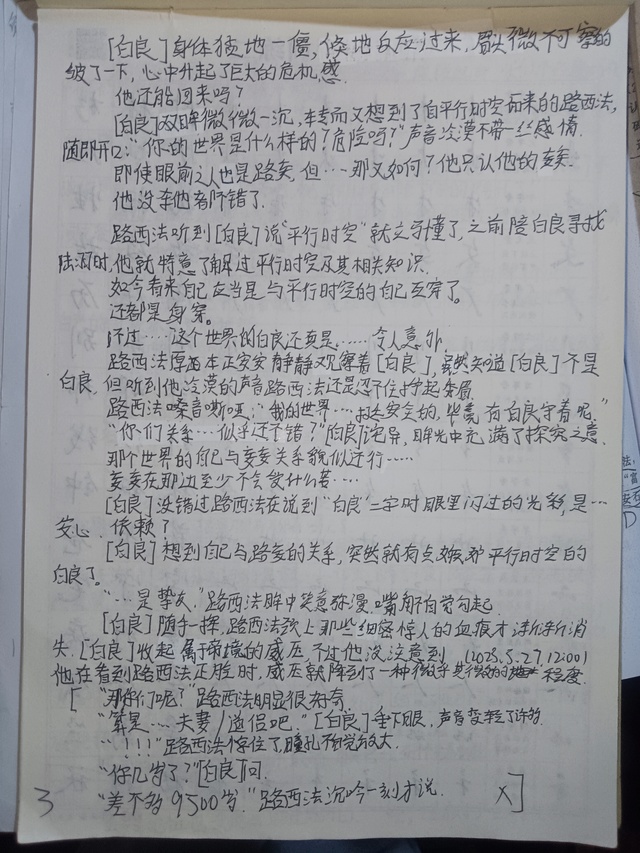 [白良]身体猛地一僵,倏地反应过来,眉头微不可察的
皱了一下,心中升起了巨大的危机感.
他还能回来吗?
[白良]双眸微微一沉,转而又想到了自平行时空而来的路西法,
随即开口:“你的世界是什么样的?危险吗?”声音淡漠不带一丝感情.
即使眼前之人也是路葵,但…那又如何?他只认他的葵葵.
他没杀他都有所错了.
路西法听到[白良]说“平行时空”就立马懂了,之前陪白良寻找
时,他就特意了解过平行时空及其相关知识.
如今看来自己应当是与平行时空的自己互穿了.
还都是身穿.
不过……这个世界的白良还真是……令人意外.
路西法原本正安安静静观察着[白良],虽然知道[白良]不是
白良,但听到他淡漠的声音路西法还是忍不住拧起眉眉.
路西法嗓音嘶哑:“我的世界……挺安全的,毕竟有白良守着呢。”
“你们关系…似乎还不错?”[白良]诧异,眸光中充满了探究之意.
那个世界的自己与葵葵关系貌似还行……
葵葵在那边至少不会受什么委……
[白良]没错过路西法在说到“白良”二字时眼里闪过的光彩,是…
安心.依赖?
[白良]想到自己与路葵的关系,突然就有点嫉妒平行时空的
白良了.
“…是挚友.”路西法眸中笑意弥漫,嘴角不自觉勾起.
[白良]随手一挥,路西法颈上那些细密惊人的血痕才渐渐消
失.[白良]收起属于帝境的威压.不过他没注意到 (2025.5.27 12:00)
他在看到路西法正脸时,威压就降到了一种微乎其微的程度.
[ “那你们呢?”路西法明显很好奇.
“算是……夫妻/道侣吧.”[白良]垂下眼,声音变轻了许多.
“!!!”路西法愣住了,瞳孔不自觉放大.
“你几岁了?”[白良]问.
“差不多9500岁.”路西法沉吟一刻才说. X]
3